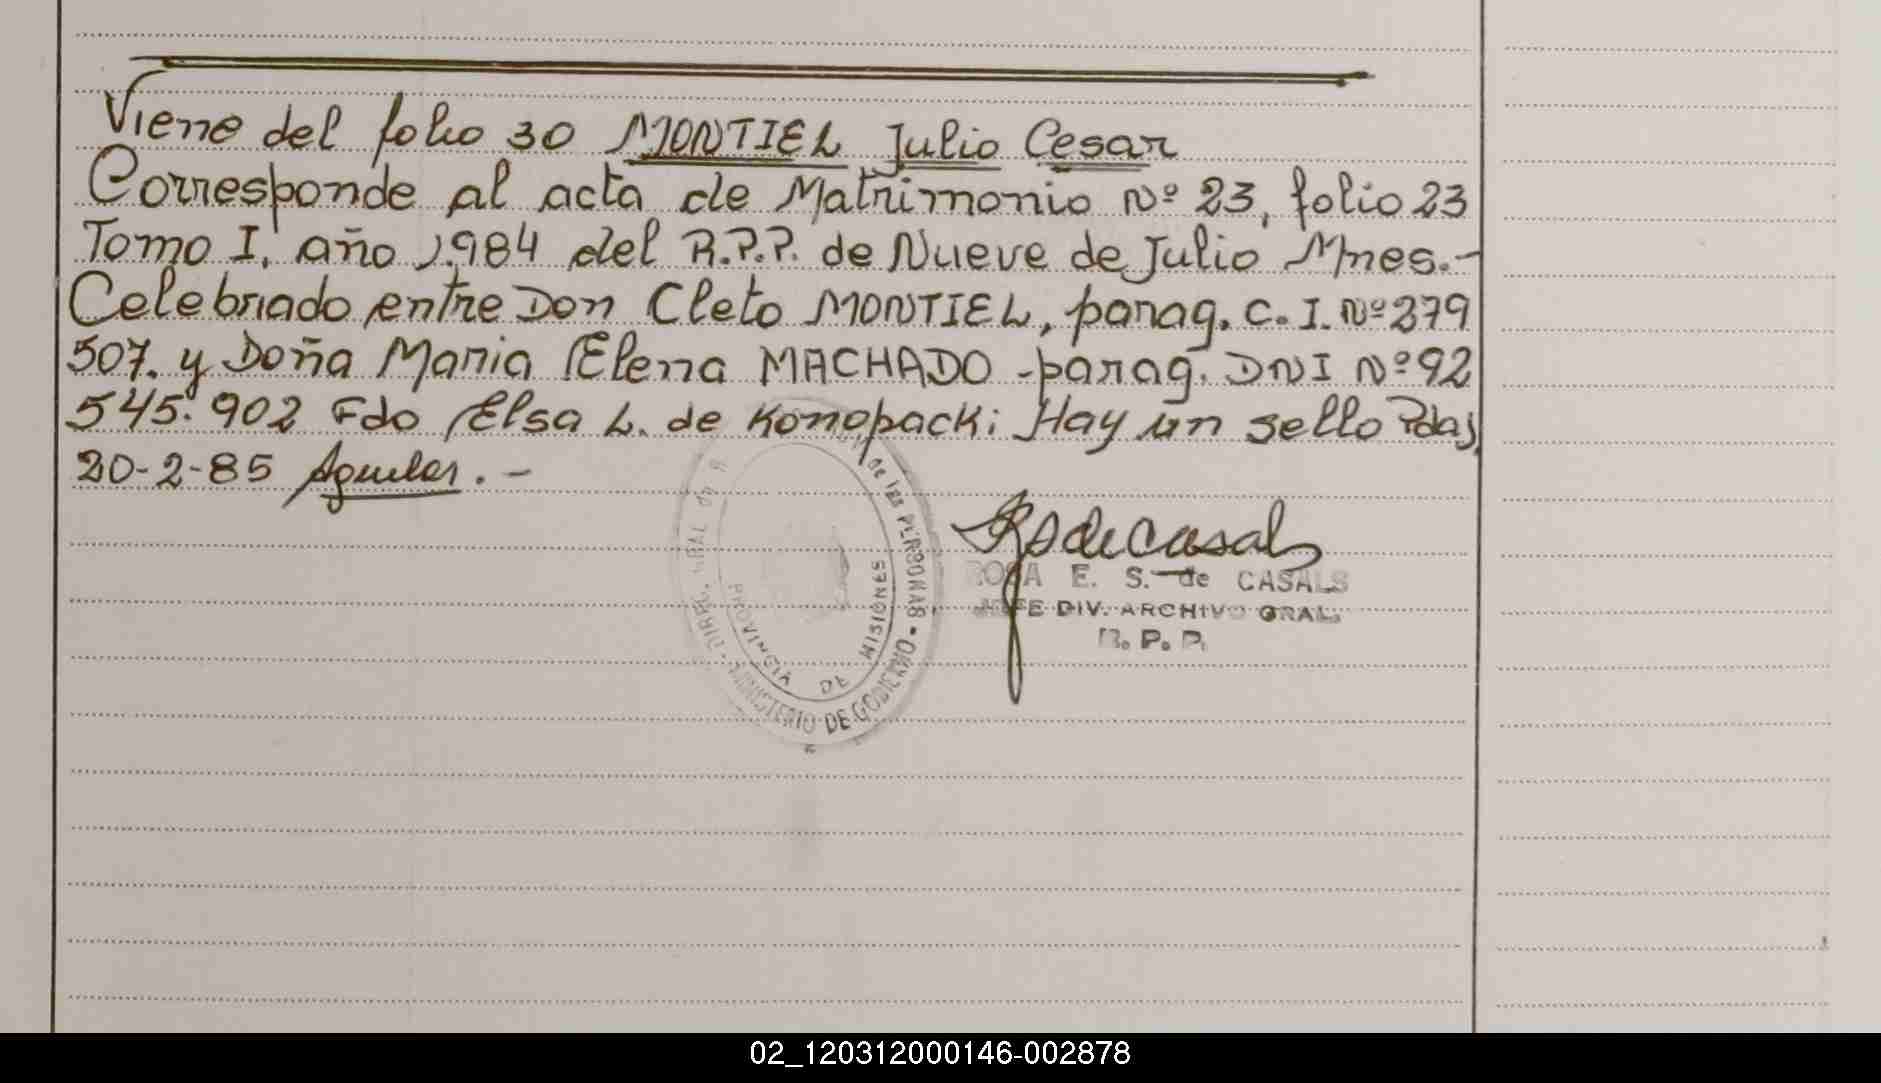 Viene del folio 30 MONTIEL Julio Cesar
Corresponde al acta de Matrimonio Nº 23, folio 23
Tomo I, año 1.984 del R.P.P. de Nueve de Julio Mnes.-
Celebriado entre Don Cleto MONTIEL, parag. C.I. Nº 279
507. y Doña Maria Elena MACHADO - parag. DNI Nº 92
545.902 Fdo Elsa L. de Konopacki Hay un sello Pdas,
20-2-85 Aguilar.-
RSdeCasals
ROSA E. S. de CASALS
JEFE DIV. ARCHIVO GRAL.
R. P. P.
de las PERSONAS • MINISTERIO DE GOBIERNO
PROVINCIA DE MISIONES
02_120312000146-002878